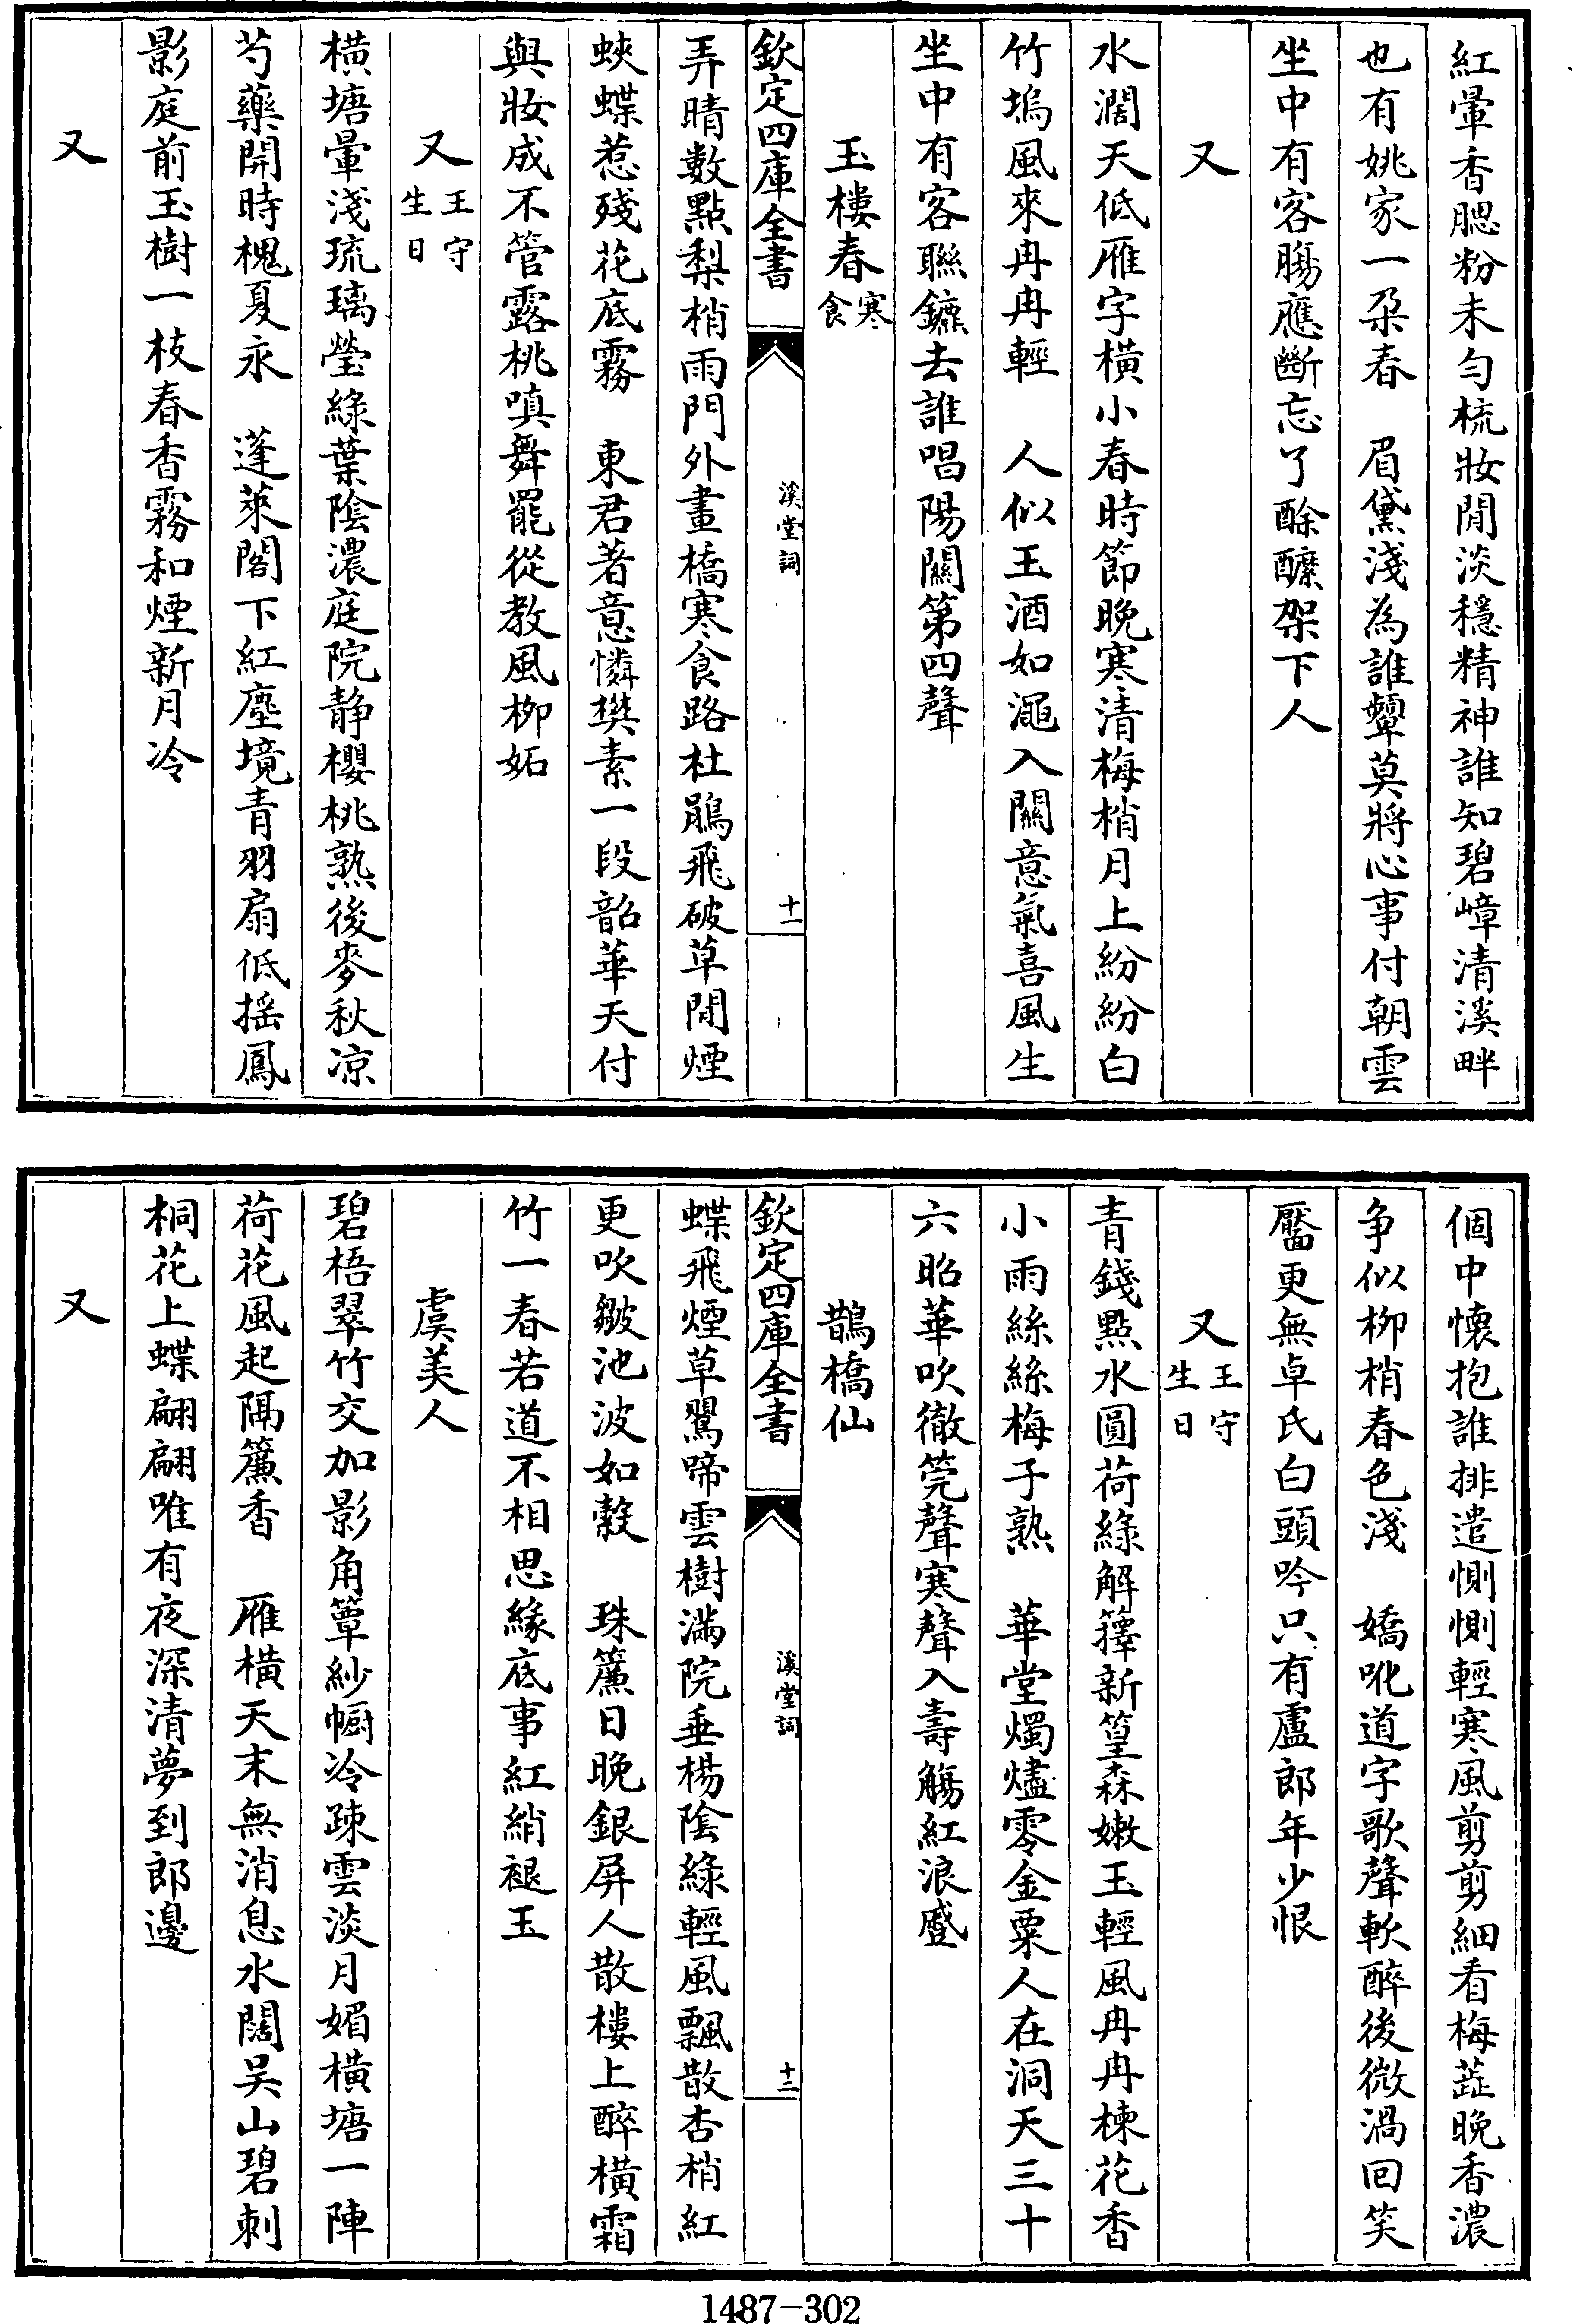 紅暈香腮粉未勻梳妝閒淡穩精神誰知碧嶂清溪畔
也有姚家一朶春　眉黛淺為誰顰莫將心事付朝雲
坐中有客腸應斷忘了酴醾架下人
又
水濶天低雁字橫小春時節晚寒清梅梢月上紛紛白
竹塢風來冉冉輕　人似玉酒如澠入關意氣喜風生
坐中有客聯鑣去誰唱陽關第四聲
玉樓春寒食
欽定四庫全書
溪堂詞
十一
弄晴數點梨梢雨門外畫橋寒食路杜鵑飛破草閒煙
蛺蝶惹殘花底霧　東君著意憐樊素一段韶華天付
與妝成不管露桃嗔舞罷從教風柳妬
又王守生日
橫塘暈淺琉璃瑩綠葉陰濃庭院静櫻桃熟後麥秋凉
芍藥開時槐夏永　蓬萊閣下紅塵境青羽扇低揺鳳
影庭前玉樹一枝春香霧和煙新月冷
又
個中懐抱誰排遣惻惻輕寒風剪剪細看梅蕋晚香濃
争似柳梢春色淺　嬌吪道字歌聲軟醉後微渦回笑
靨更無卓氏白頭吟只有盧郎年少恨
又王守生日
青錢點水圓荷綠解籜新篁森嫩玉輕風冉冉楝花香
小雨絲絲梅子熟　華堂燭燼零金粟人在洞天三十
六昭華吹徹筦聲寒聲入壽觴紅浪蹙
鵲橋仙
欽定四庫全書
溪堂詞
十二
蝶飛煙草鸎啼雲樹滿院垂楊陰綠輕風飄散杏梢紅
更吹皺池波如縠　珠簾日晚銀屏人散樓上醉橫霜
竹一春若道不相思緣底事紅綃褪玉
虞美人
碧梧翠竹交加影角簟紗㡡冷疎雲淡月媚橫塘一陣
荷花風起隔簾香　雁橫天末無消息水闊吴山碧刺
桐花上蝶翩翩唯有夜深清夢到郎邊
又
1487-302